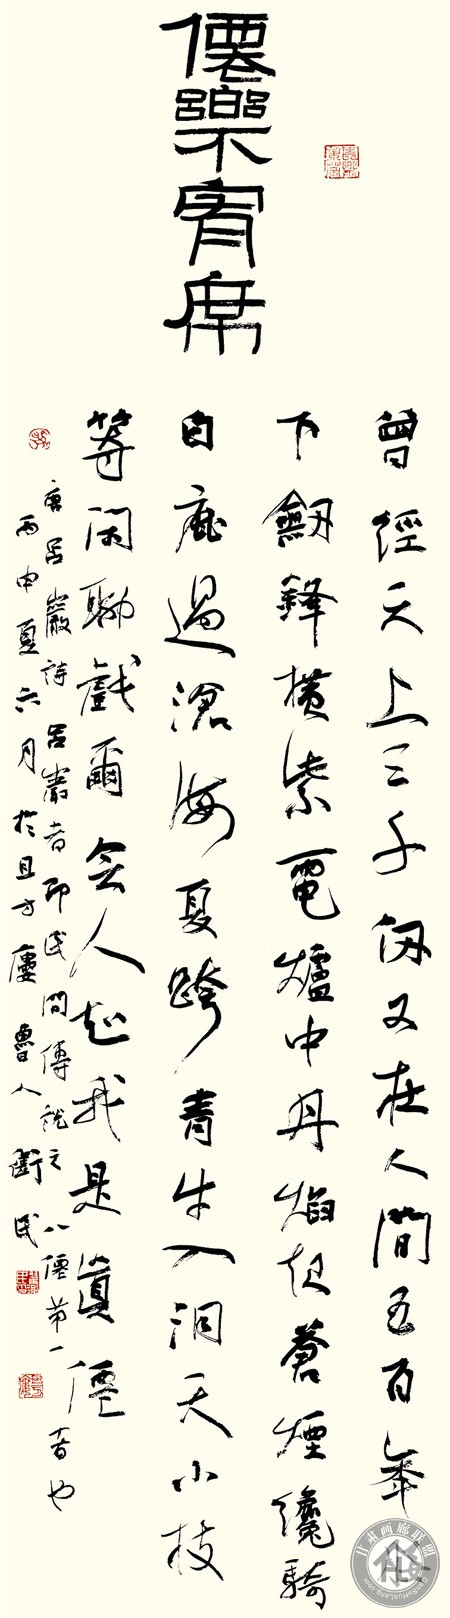 僊樂宵席
曾經天上三千劫又在人間五百年腰
下劒鋒橫紫電爐中丹焰起蒼煙纔騎
白鹿過滄海复跨青牛入洞天小技
等閑聊戲爾無人知我是真僊
唐呂巖詩呂巖者即民間傳說之八僊第一者也
丙申夏六月於且方廔魯人衛民
甘肃画廊联盟
GanSuHuaLang.com